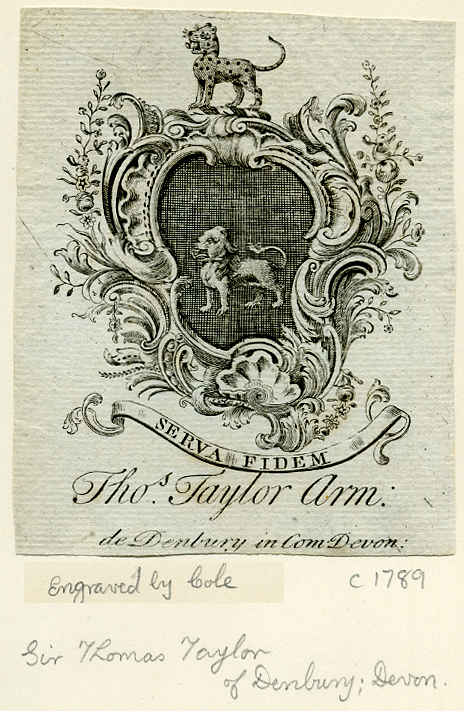 SERVA FIDEM
Tho.s Taylor Arm:
de Denbury in Com Devon:
Engraved by Cole
c 1789
Sir Thomas Taylor
of Denbury; Devon.